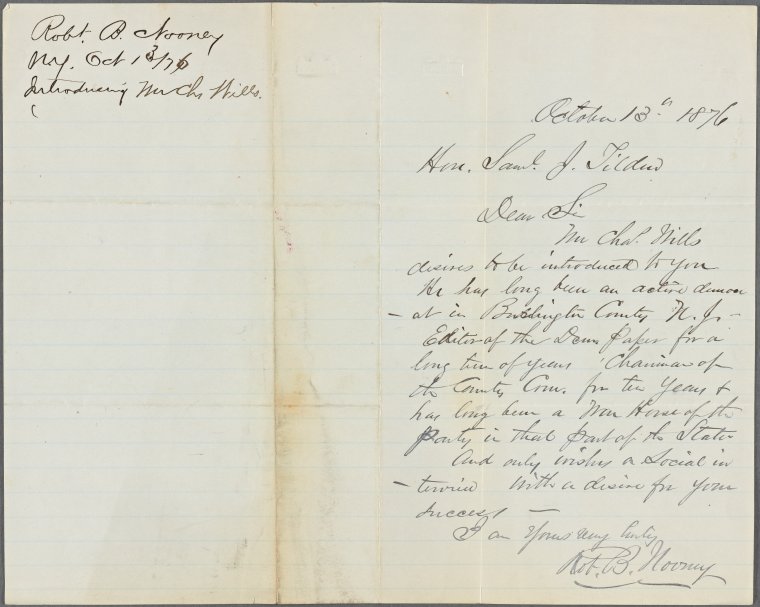 Robt. B. Nooney
NY. Oct 13/76
Introducing Mr Chs Wills.
October 13th 1876
Hon. Saml. J. Tilden
Dear Sir
Mr Chas. Wills
desires to be introduced to you
He has long been an active democr
- at in Burlington County N. J. -
Editor of the Dem paper for a
long term of years Chairman of
the County Com. for ten years &
has long been a War Horse of the
party in that part of the State
And only wishes a social in
- terview with a desire for your
success -
I am Yours very truly
Robt. B. Nooney